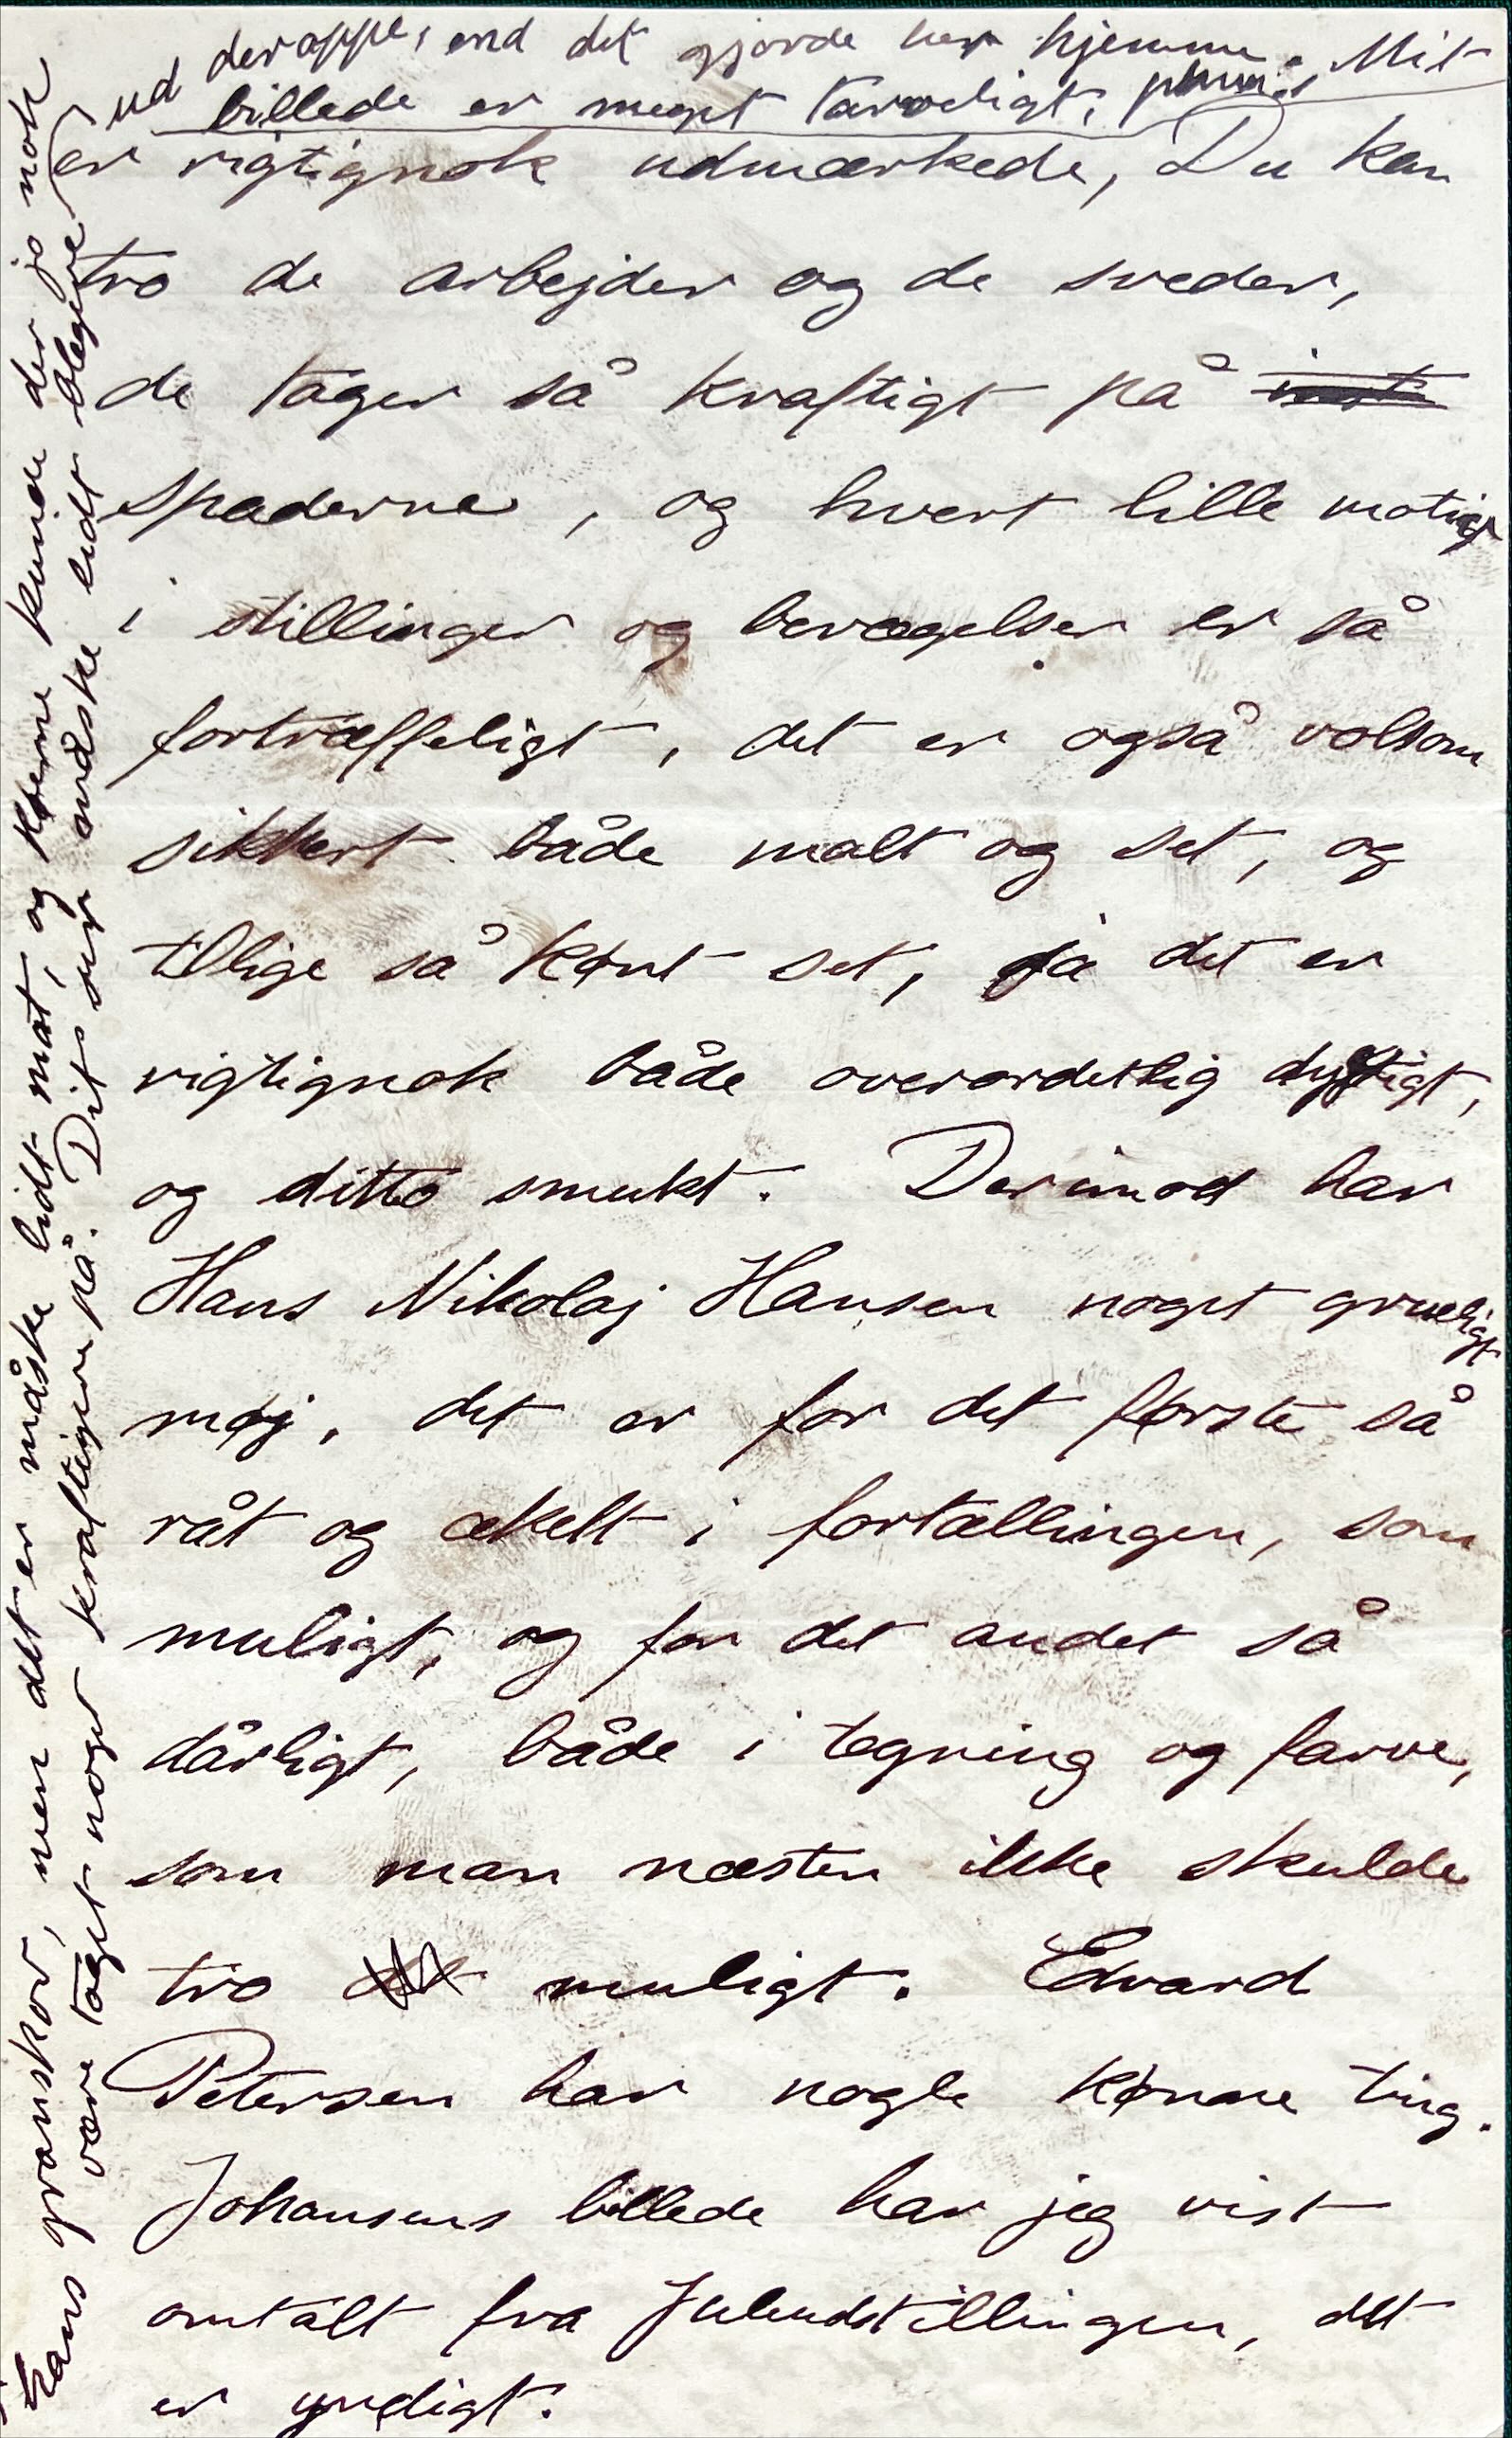 er rigtignok udmærkede, Du kan
tro de arbejder og de sveder,
de tager så kraftigt på
spaderne, og hvert lille motiv
i stillinger og bevægelser er så
fortræffeligt, det er også volsom
sikkert både malt og set, og
tillige så kønt set, ja det er
rigtignok både overordetlig dygtigt,
og ditto smukt. Derimod har
Hans Nikolaj Hansen noget grueligt
møj, det er for det første så
råt og ækelt i fortællingen, som
muligt, og for det andet så
dårligt, både i tegning og farve,
som man næsten ikke skulde
tro muligt. Edvard
Petersen har nogle kønne ting.
Johansens billede har jeg vist
omtalt fra Juludstillingen, det
er yndigt.
hans granskov, men det er måske lidt mat, og køerne kunde der jo nok
være taget noget kraftigere på. Dit var måske lidt blegere
ud deroppe, end det gjorde her hjemme. Mit
billede er meget tarveligt,